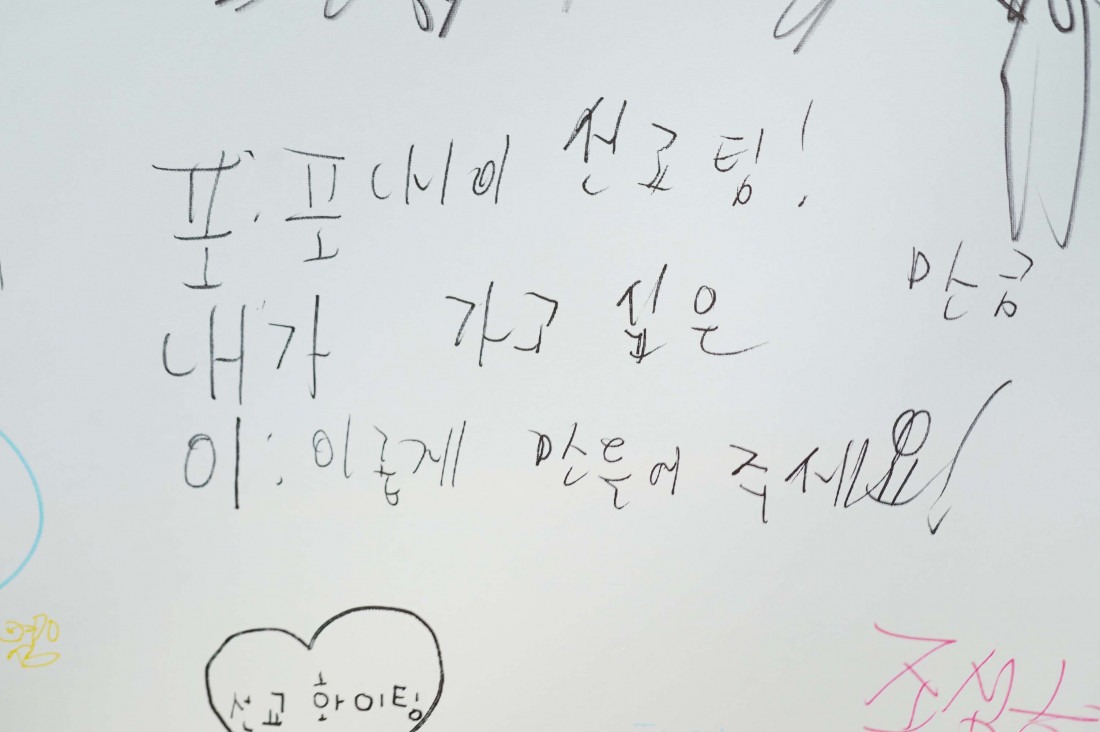 포. 포내이 선교팀!
내가 가고 싶은
만큼
이: 이롭게 만들어 주세요!
선교 화이팅